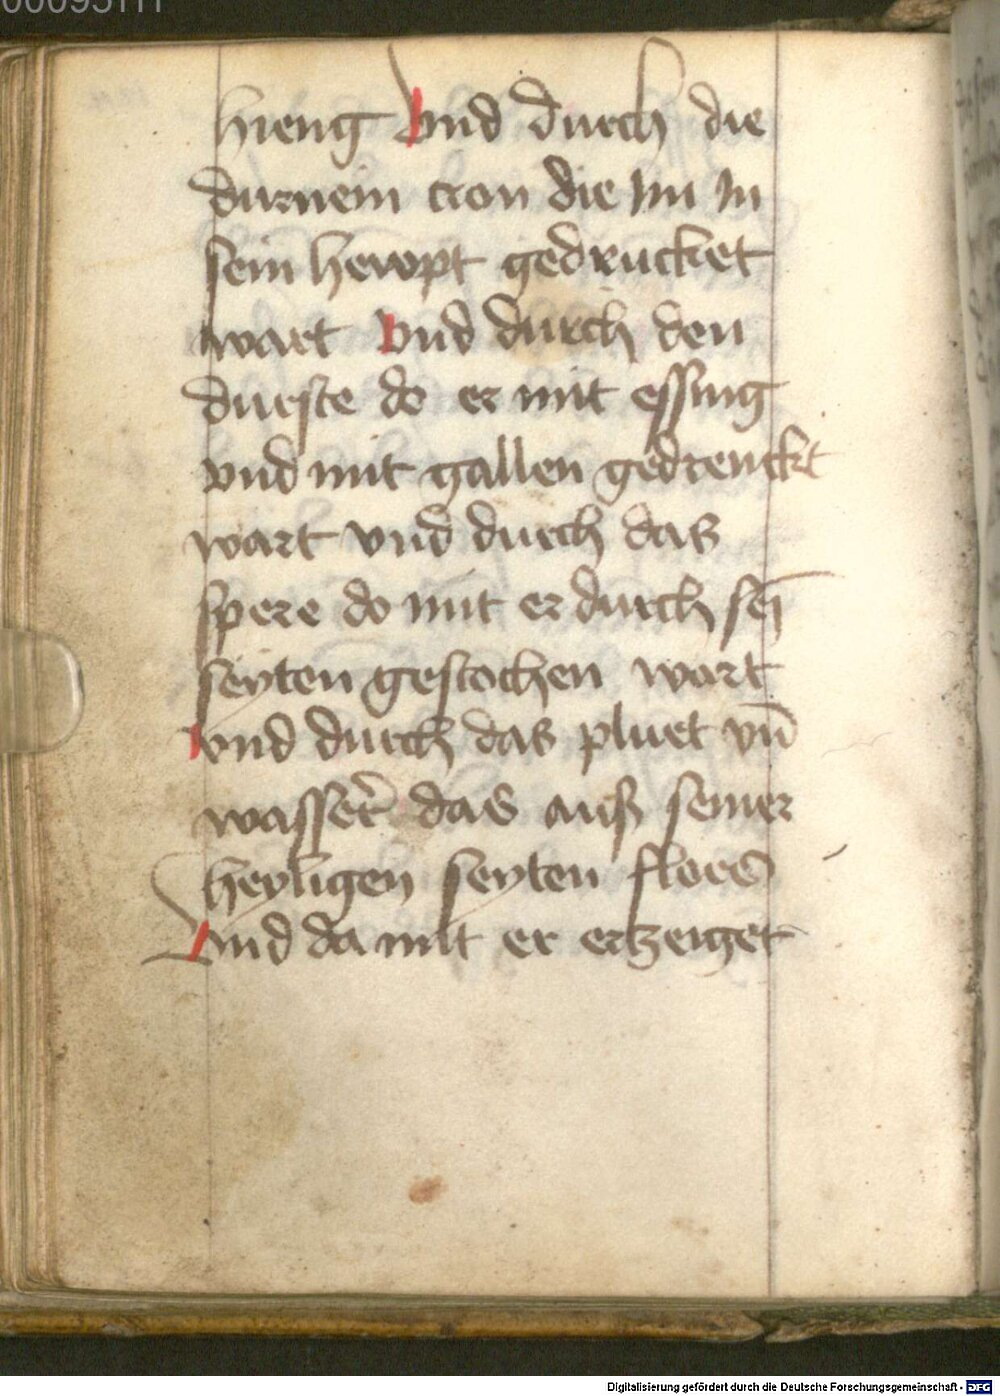 hieng Vnd durch die
durnein cron die Im In
sein hewpt gedrucket
wart Vnd durch den
durste do er mit essing
vnd mit gallen gedrenckt
wart vnd durch das
spere do mit er durch sein̄
seyten gestochen wart
vnd durch das pluet vn̄
wasser das auß seiner
heyligen seyten floes
Vnd da mit er erzeiget
Digitalisierung gefördert durch die Deutsche Forschungsgemeinschaft - DFG